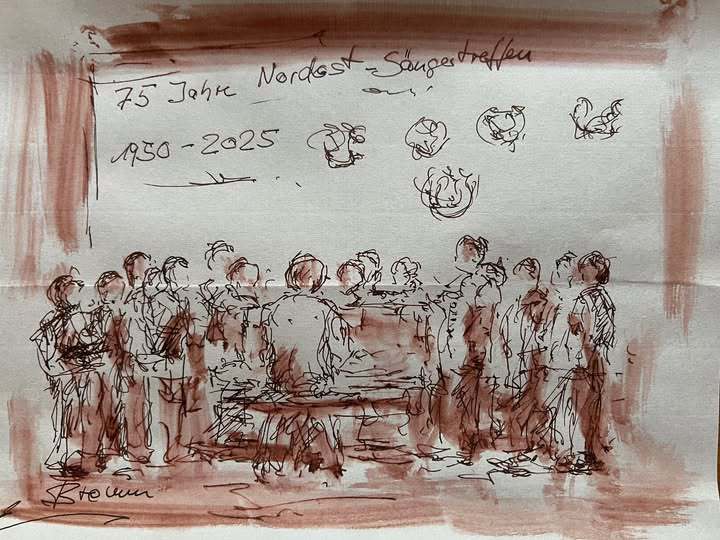 75 Jahre Nordost-Sängertreffen
1950-2025